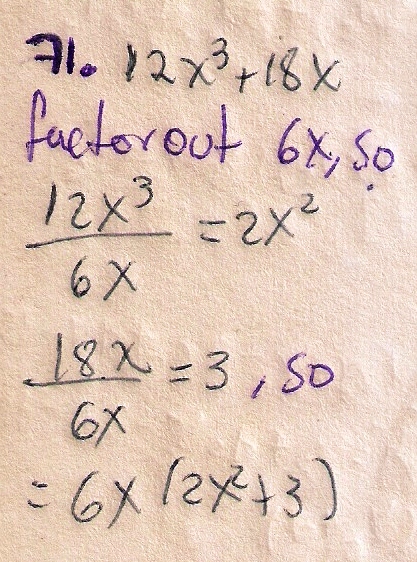 71. 12x³+18x
factor out 6x, so
12x³
/6x = 2x²
18x
/6x = 3, so
= 6x (2x²+3)